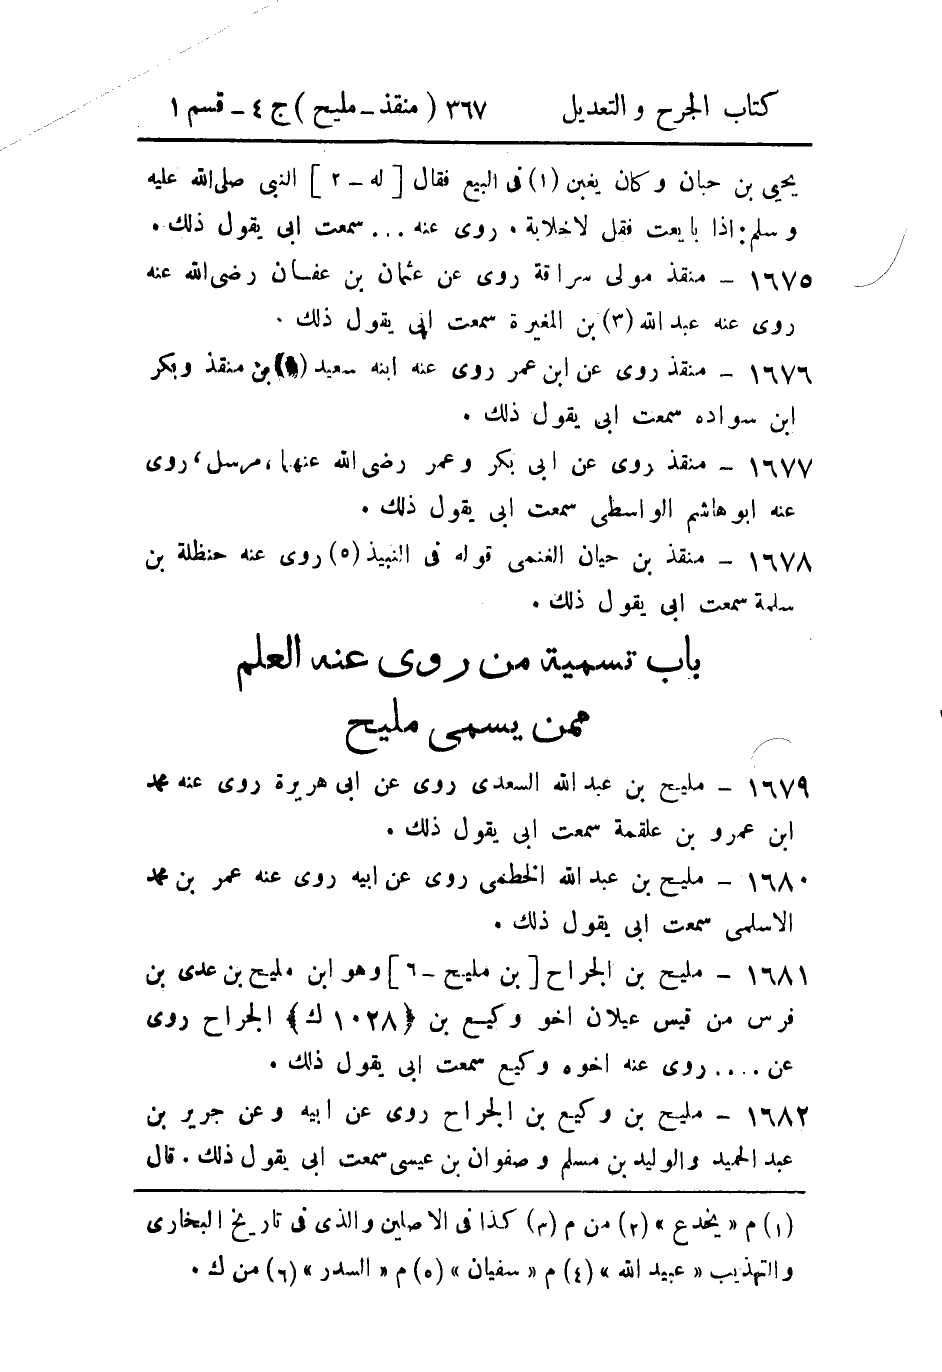 كتاب الجرح و التعديل ٣٦٧ ( منقذ ـ مليح ) ج ٤ ـ قسم ١
يحيى بن حبان وكان يغبن (١) فى البيع فقال [ له ـ ٢ ] النبى صلى الله عليه
و سلم : اذا بايعت فقل لاخلابة . روى عنه ... سمعت ابى يقول ذلك .
١٦٧٥ – منقذ مولى سراقة روى عن عثمان بن عفان رضى الله عنه
روى عنه عبد الله (٣) بن المغيرة سمعت ابى يقول ذلك .
١٦٧٦ – منقذ روى عن ابن عمر روى عنه ابنه سعيد ( ) بن منقذ وبكر
ابن سواده سمعت ابى يقول ذلك .
١٦٧٧ – منقذ روى عن ابى بكر وعمر رضى الله عنهما ، مرسل ، روى
عنه ابو هاشم الواسطى سمعت ابى يقول ذلك .
١٦٧٨ – منقذ بن حيان الغنمى قوله فى النبيذ (٥) روى عنه حنظلة بن
سلمة سمعت ابى يقول ذلك .
باب تسمية من روى عنه العلم
ممن يسمى مليح
١٦٧٩ – مليح بن عبد الله السعدى روى عن ابى هريرة روى عنه محمد
ابن عمرو بن علقمة سمعت ابى يقول ذلك .
١٦٨٠ – مليح بن عبد الله الخطمى روى عن ابيه روى عنه عمر بن محمد
الاسلمى سمعت ابى يقول ذلك .
١٦٨١ – مليح بن الجراح [ بن مليح ـ ٦ ] وهو ابن مليح بن عدى بن
فرس من قيس عيلان اخو وكيع بن ﴿ ١٠٢٨ ك ﴾ الجراح روى
عن .... روى عنه اخوه وكيع سمعت ابى يقول ذلك .
١٦٨٢ – مليح بن وكيع بن الجراح روى عن ابيه وعن جرير بن
عبد الحميد والوليد بن مسلم و صفوان بن عيسى سمعت ابى يقول ذلك . قال
(١) م « يخدع » (٢) من م (٣) كذا فى الاصلين والذى فى تاريخ البخارى
والتهذيب « عبيد الله » (٤) م « سفيان » (٥) م « السدر » (٦) من ك .